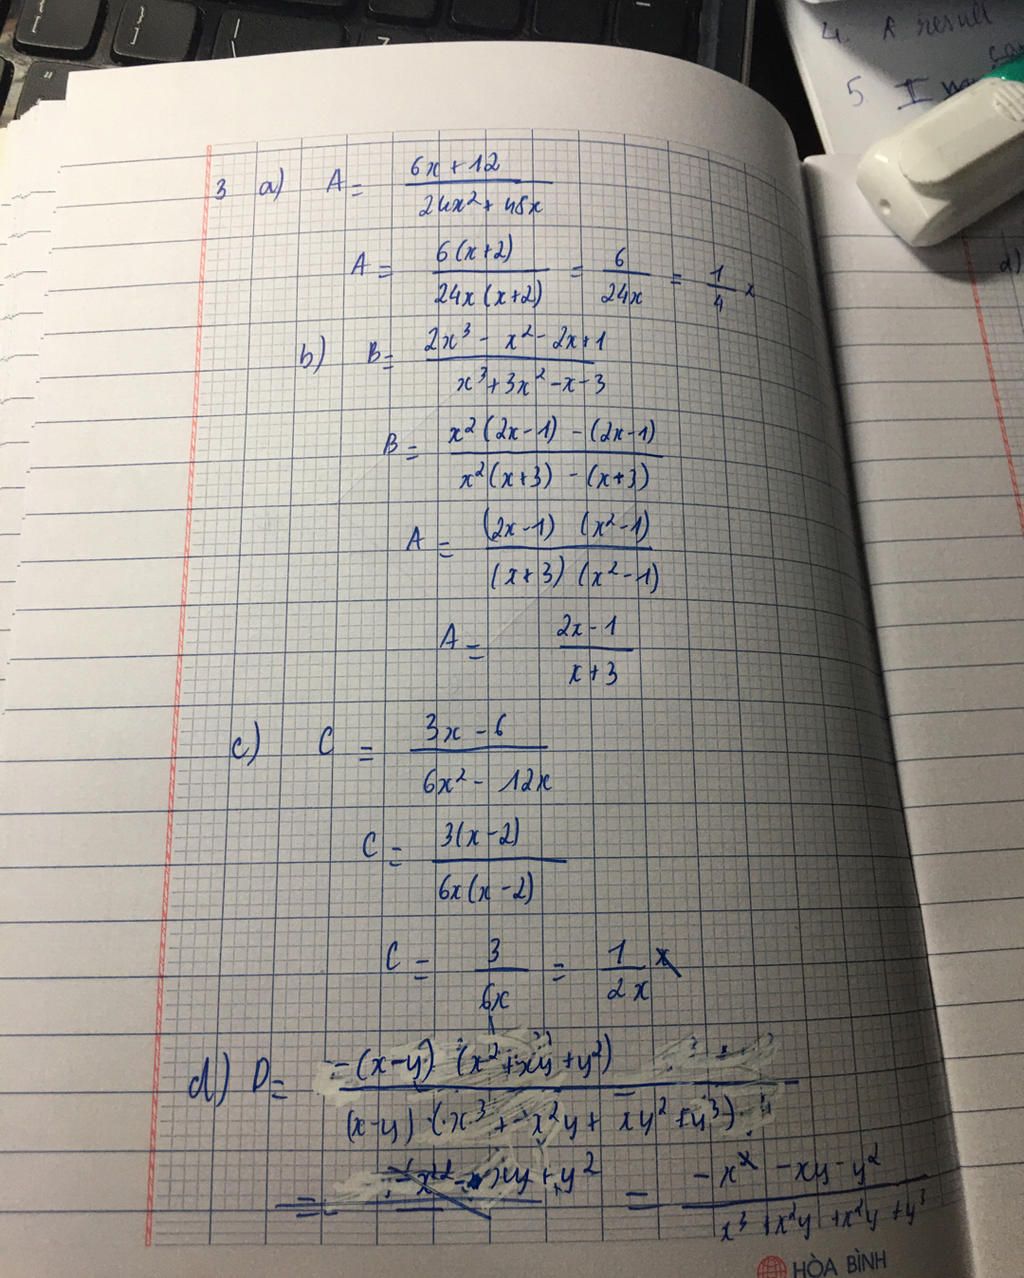 4. A result
5. I
3 a) A = (6x + 12)/(24x² + 48x)
A = 6(x+2)/24x(x+2) = 6/24x = 1/4 x
b) B = (2x³ - x² - 2x + 1)/(x³ + 3x² - x - 3)
B = (x²(2x-1) - (2x-1))/(x²(x+3) - (x+3))
A = (2x-1) (x²-1)/(x+3) (x²-1)
A = (2x-1)/(x+3)
c) C = (3x - 6)/(6x² - 12x)
C = 3(x-2)/6x(x-2)
C = 3/6x = 1/2x
d) D = -(x-y) (x² + xy + y²)/(x-y) (x³ + x²y + xy² + y³)
= = (-x² - xy - y²)/(x³ + x²y + x²y + y³)
HÒA BÌNH
d)